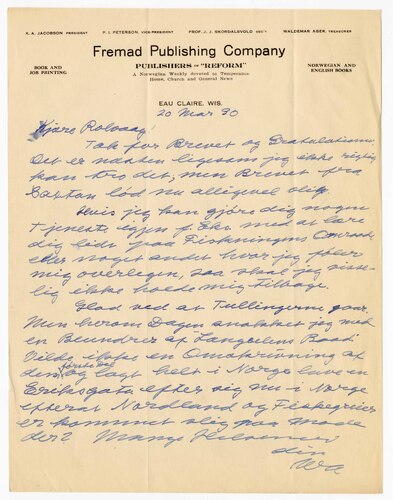 K. A. JACOBSON PRESIDENT P. I. PETERSON, VICE-PRESIDENT PROF. J. J. SKORDALSVOLD SEC'Y WALDEMAR AGER, TREASURER
Fremad Publishing Company
BOOK AND
JOB PRINTING
PUBLISHERS OF "REFORM"
A Norwegian Weekly devoted to Temperance
Home, Church and General News
NORWEGIAN AND
ENGLISH BOOKS
EAU CLAIRE, WIS.
20 Mar 30
Kjære Rolvaag!
Tak for Brevet og Gratulationen
Det er næsten ligesom jeg ikke rigtig
kan tro det, men Brevet fra
lød nu alligevel slig
Hvis jeg kan gjøre dig nogen
Tjeneste igjen f. Eks med at lære
dig lidt paa Fiskningens Omraade
eller noget andet hvor jeg føler
mig overlegen, saa skal jeg
lig ikke holde mig tilbage.
Glad ved at Tullingerne gaar.
Men herom Dagen snakket jeg med
en Beundrer af "Længselens Baad"
Vilde ikke en Omskrivning af
den og lagt helt i Norge have en
Eriksgata efter sig nu i Norge
efterat Nordland og Fiskegutter
er kommet slig paa Mode
der? Mange Hilsener
din
WA